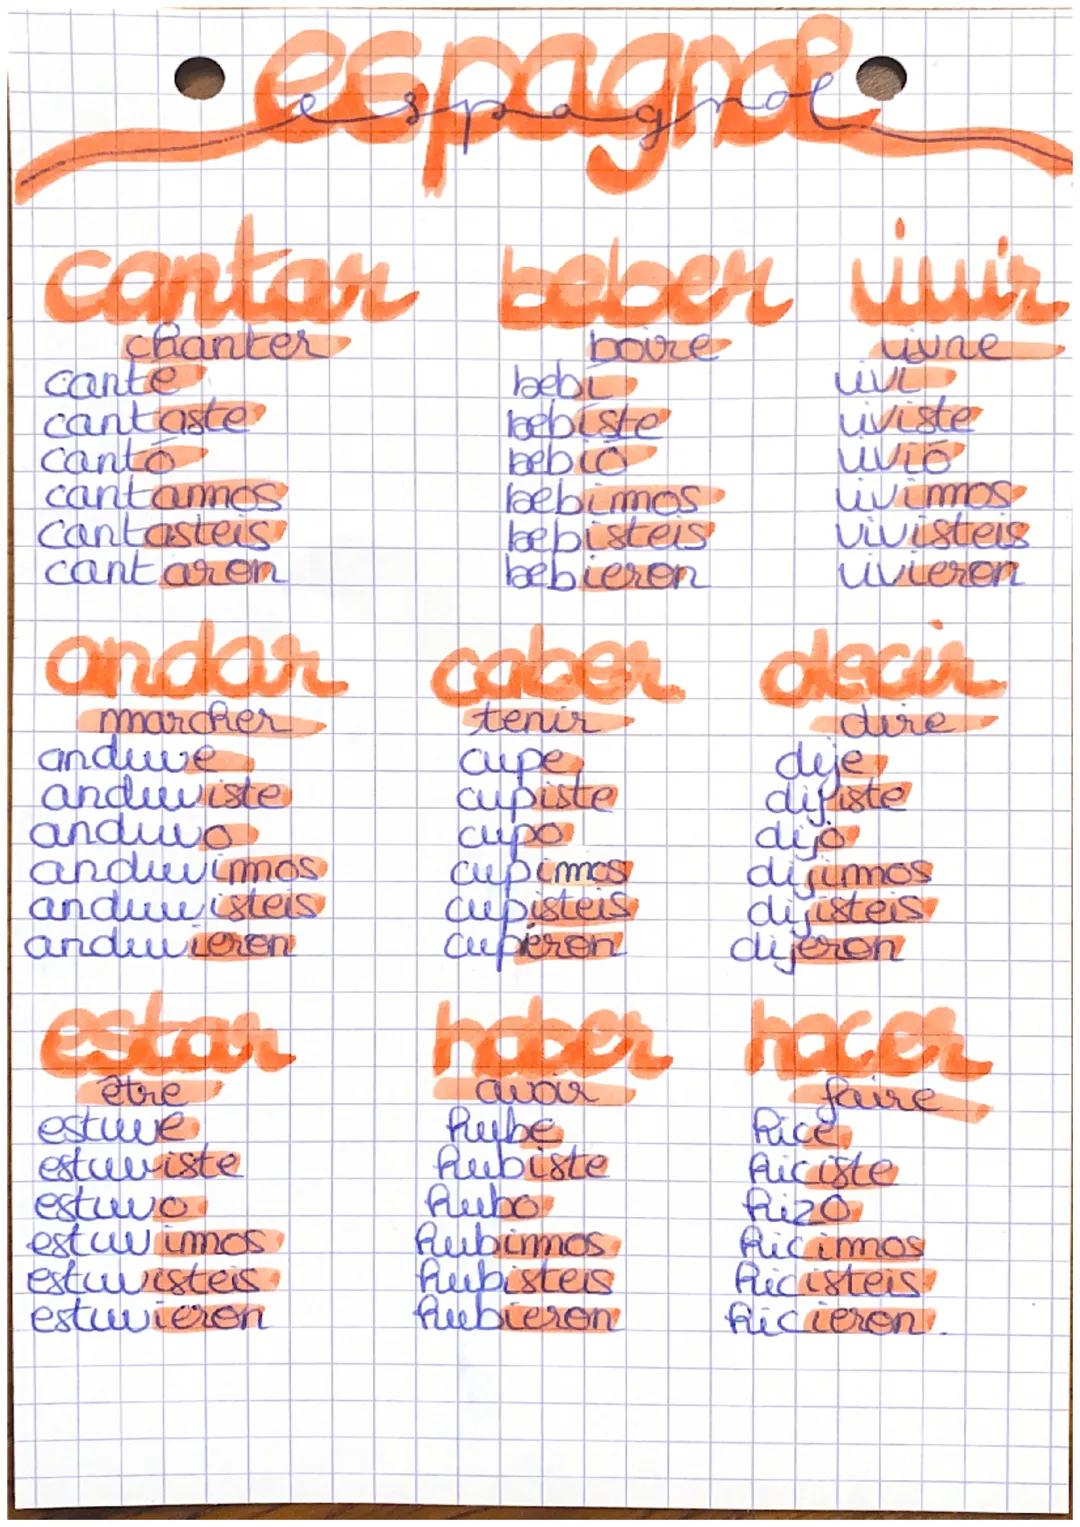 espagnol
cantar beber vivir
chanter boire vivre
canté bebí viví
cantaste bebiste viviste
cantó bebió vivió
cantamos bebimos vivimos
cantasteis bebisteis vivisteis
cantaron bebieron vivieron
andar caber decir
marcher tenir dire
anduve cupe dije
anduviste cupiste dijiste
anduvo cupo dijo
anduvimos cupimos dijimos
anduvisteis cupisteis dijisteis
anduvieron cuperon dijeron
estar haber hacer
être avoir faire
estuve hube hice
estuviste hubiste hiciste
estuvo hubo hizo
estuvimos hubimos hicimos
estuvisteis hubisteis hicisteis
estuvieron hubieron hicieron.